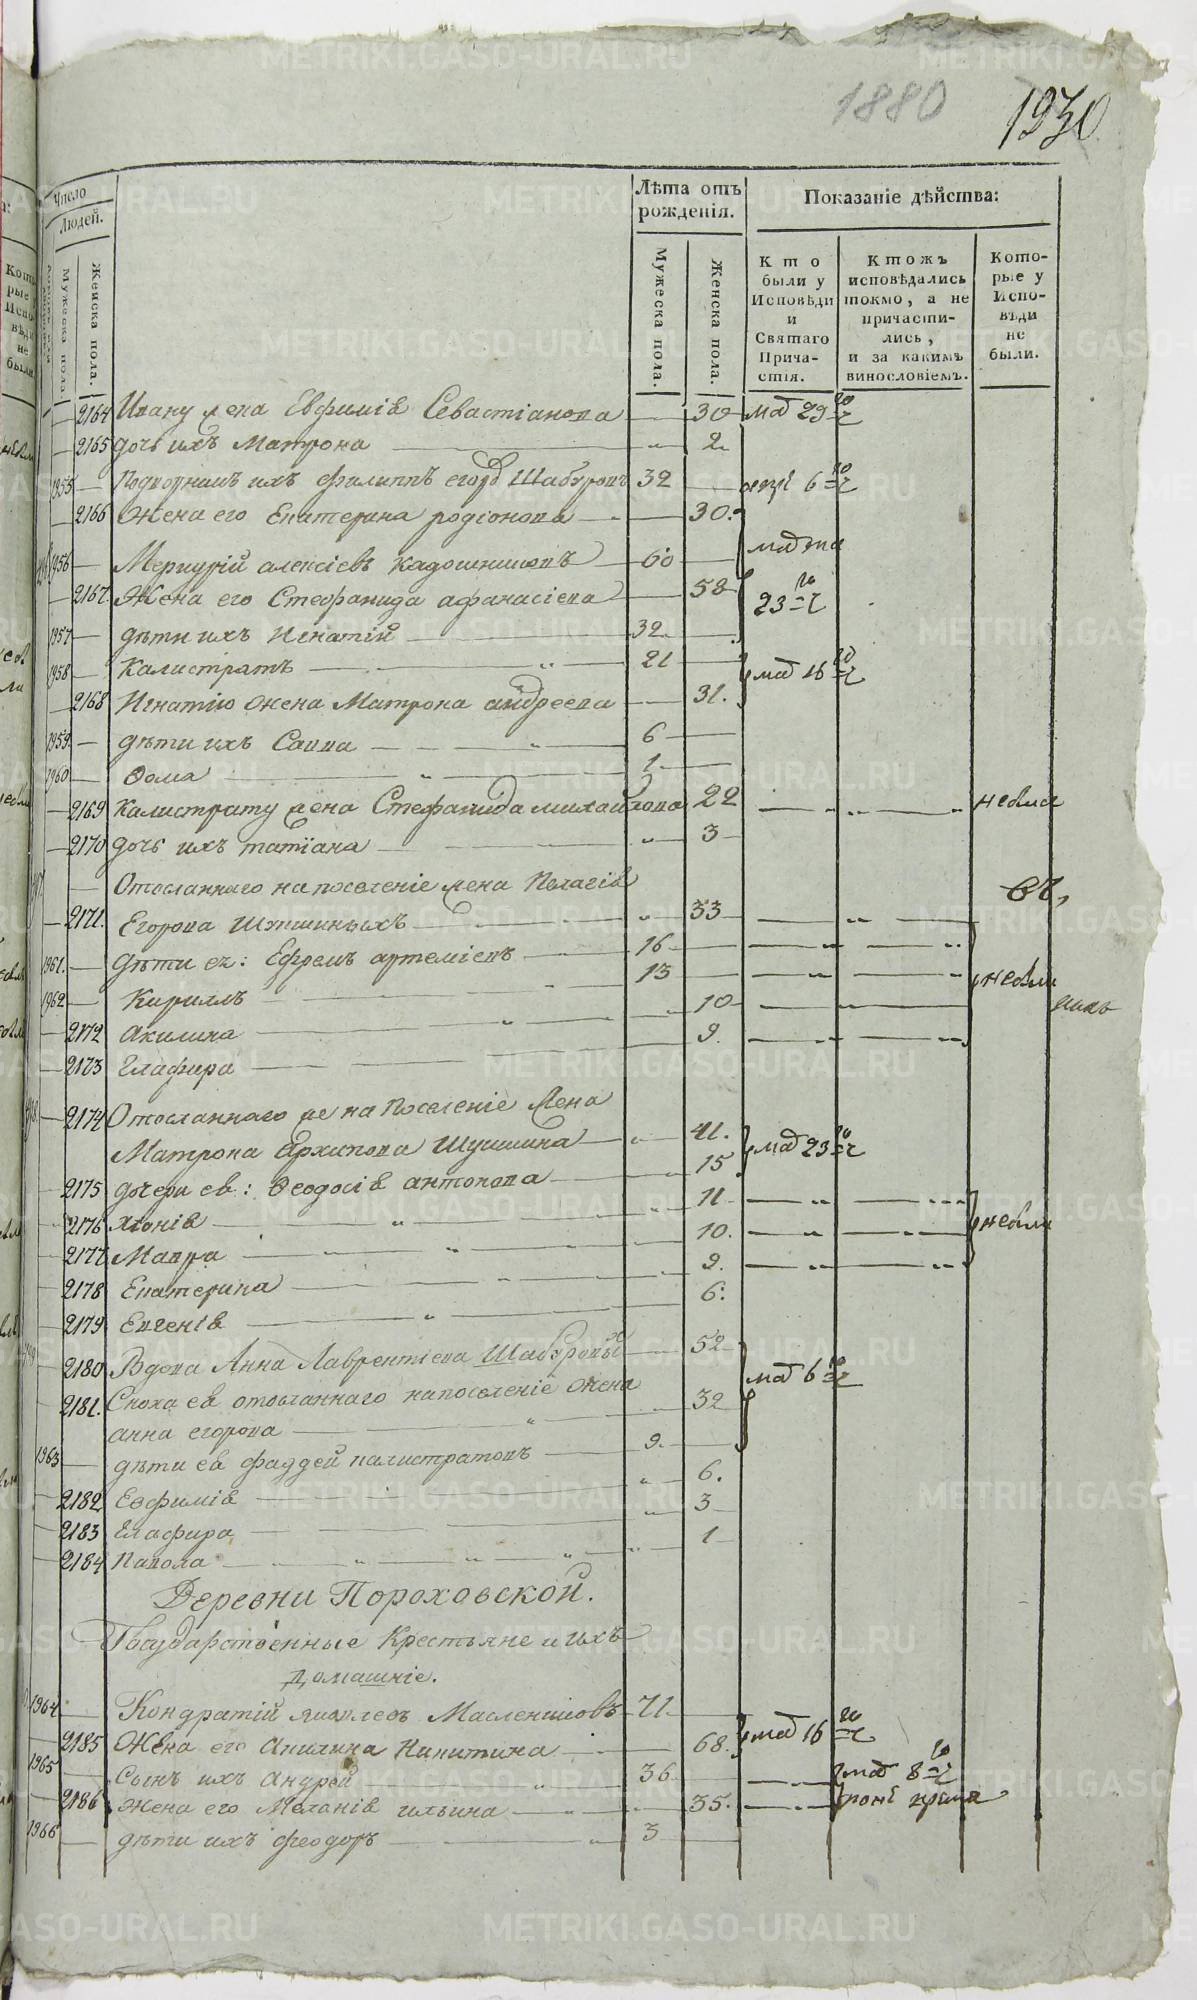 1880
1930
Число Людей.
Мужеска пола.
Женска пола.
Лѣта отъ рожденія.
Мужеска пола.
Женска пола.
Показаніе дѣйства:
Кто были у Исповѣди и Святаго Причастія.
Ктожъ исповѣдались токмо, а не причастились, и за какимъ винословіемъ.
Которые у Исповѣди не были.
2164 Ивану жена Евфимія Севастіанова 30 маія 29 го
2165 дочь ихъ Матрона 2
1955 Подворникъ ихъ Филиппъ Шабуровъ 32 6 го
2166 Жена его Екатерина родіонова 30.
1956 Меркурій алексіевъ 60
2167 Жена его Стефанида афанасіева 58 23 го
1957 дѣти ихъ Игнатій 32.
1958 Калистратъ 21 16 го
2168 Игнатію жена Матрона андреева 31.
1959 дѣти ихъ Савва 6
1960 Ѳома 1.
2169 Калистрату жена Стефанида михайлова 22
2170 дочь ихъ татіана 3
Отосланнаго на поселеніе жена Пелагія
2171. Егорова 33
1961. дѣти ея: Ефремъ артеміевъ 16
1962 Кириллъ 13
2172 акилина 10
2173 Глафира 9.
2174 Отосланнаго же на Поселеніе Жена
Матрона Архипова Шушшина 41. 23 го
2175 дочери ея: Ѳеодосія антонова 15
2176 11
2177 Мавра 10.
2178 Екатерина 9.
2179 Евгенія 6.
2180 Вдова Анна Лаврентіева Шабуровыхъ 52
2181. Сноха ея отосланнаго на поселеніе жена 6 го
анна егорова 32
1963 дѣти ея фаддей калистратовъ 9.
2182 Евфимія 6.
2183 Глафира 3
2184 Павола 1
Деревни Пороховской.
Государственные Крестьяне и ихъ
Домашніе.
1964 Кондратій яковлевъ Маслениковъ 71
2185 Жена его Акилина Никитина 68. 16 го
1965 Сынъ ихъ Андрей 36 8 го
2186 Жена его Меланія ильина 35.
1966 дѣти ихъ феодоръ 3
METRIKI.GASO-URAL.RU